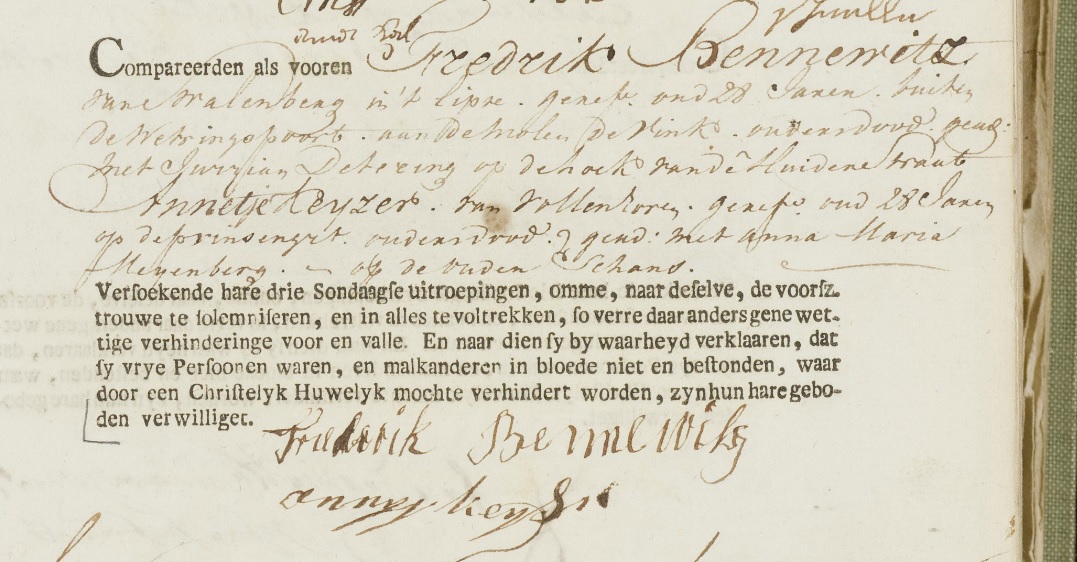 Compareerden als vooren Fredrik Bennewitz
van Stralenberg in't Lipse. geref. oud 28 Jaren. buiten
de Wetringspoort. aan de molen de Vink. ouders dood. gead:
met Jurrian Detering op de hoek van dē Huidene Straat
Annetje Keyzer. van Vollenhoven. geref. oud 28 Jaren
op de prinsengrt. ouders dood. gead: met Anna Maria
Meyenberg. op de ouden Schans.
Verſoekende hare drie Sondaagſe uitroepingen, omme, naar deſelve, de voorſz.
trouwe te ſolemniſeren, en in alles te voltrekken, ſo verre daar anders gene wet-
tige verhinderinge voor en valle. En naar dien ſy by waarheyd verklaaren, dat
ſy vrye Perſoonen waren, en malkanderen in bloede niet en beſtonden, waar
door een Chriſtelyk Huwelyk mochte verhindert worden, zyn hun hare gebo-
den verwilliget.
Frederik Bennewitz
anny key